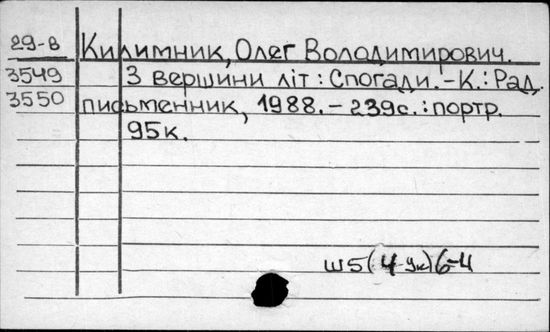 29-в Килимник, Олег Володимирович.
3549 З вершини літ: Спогади.-К.: Рад.
3550 письменник, 1988.- 239с.: портр.
95к.
Ш5(4-Ук)6-4